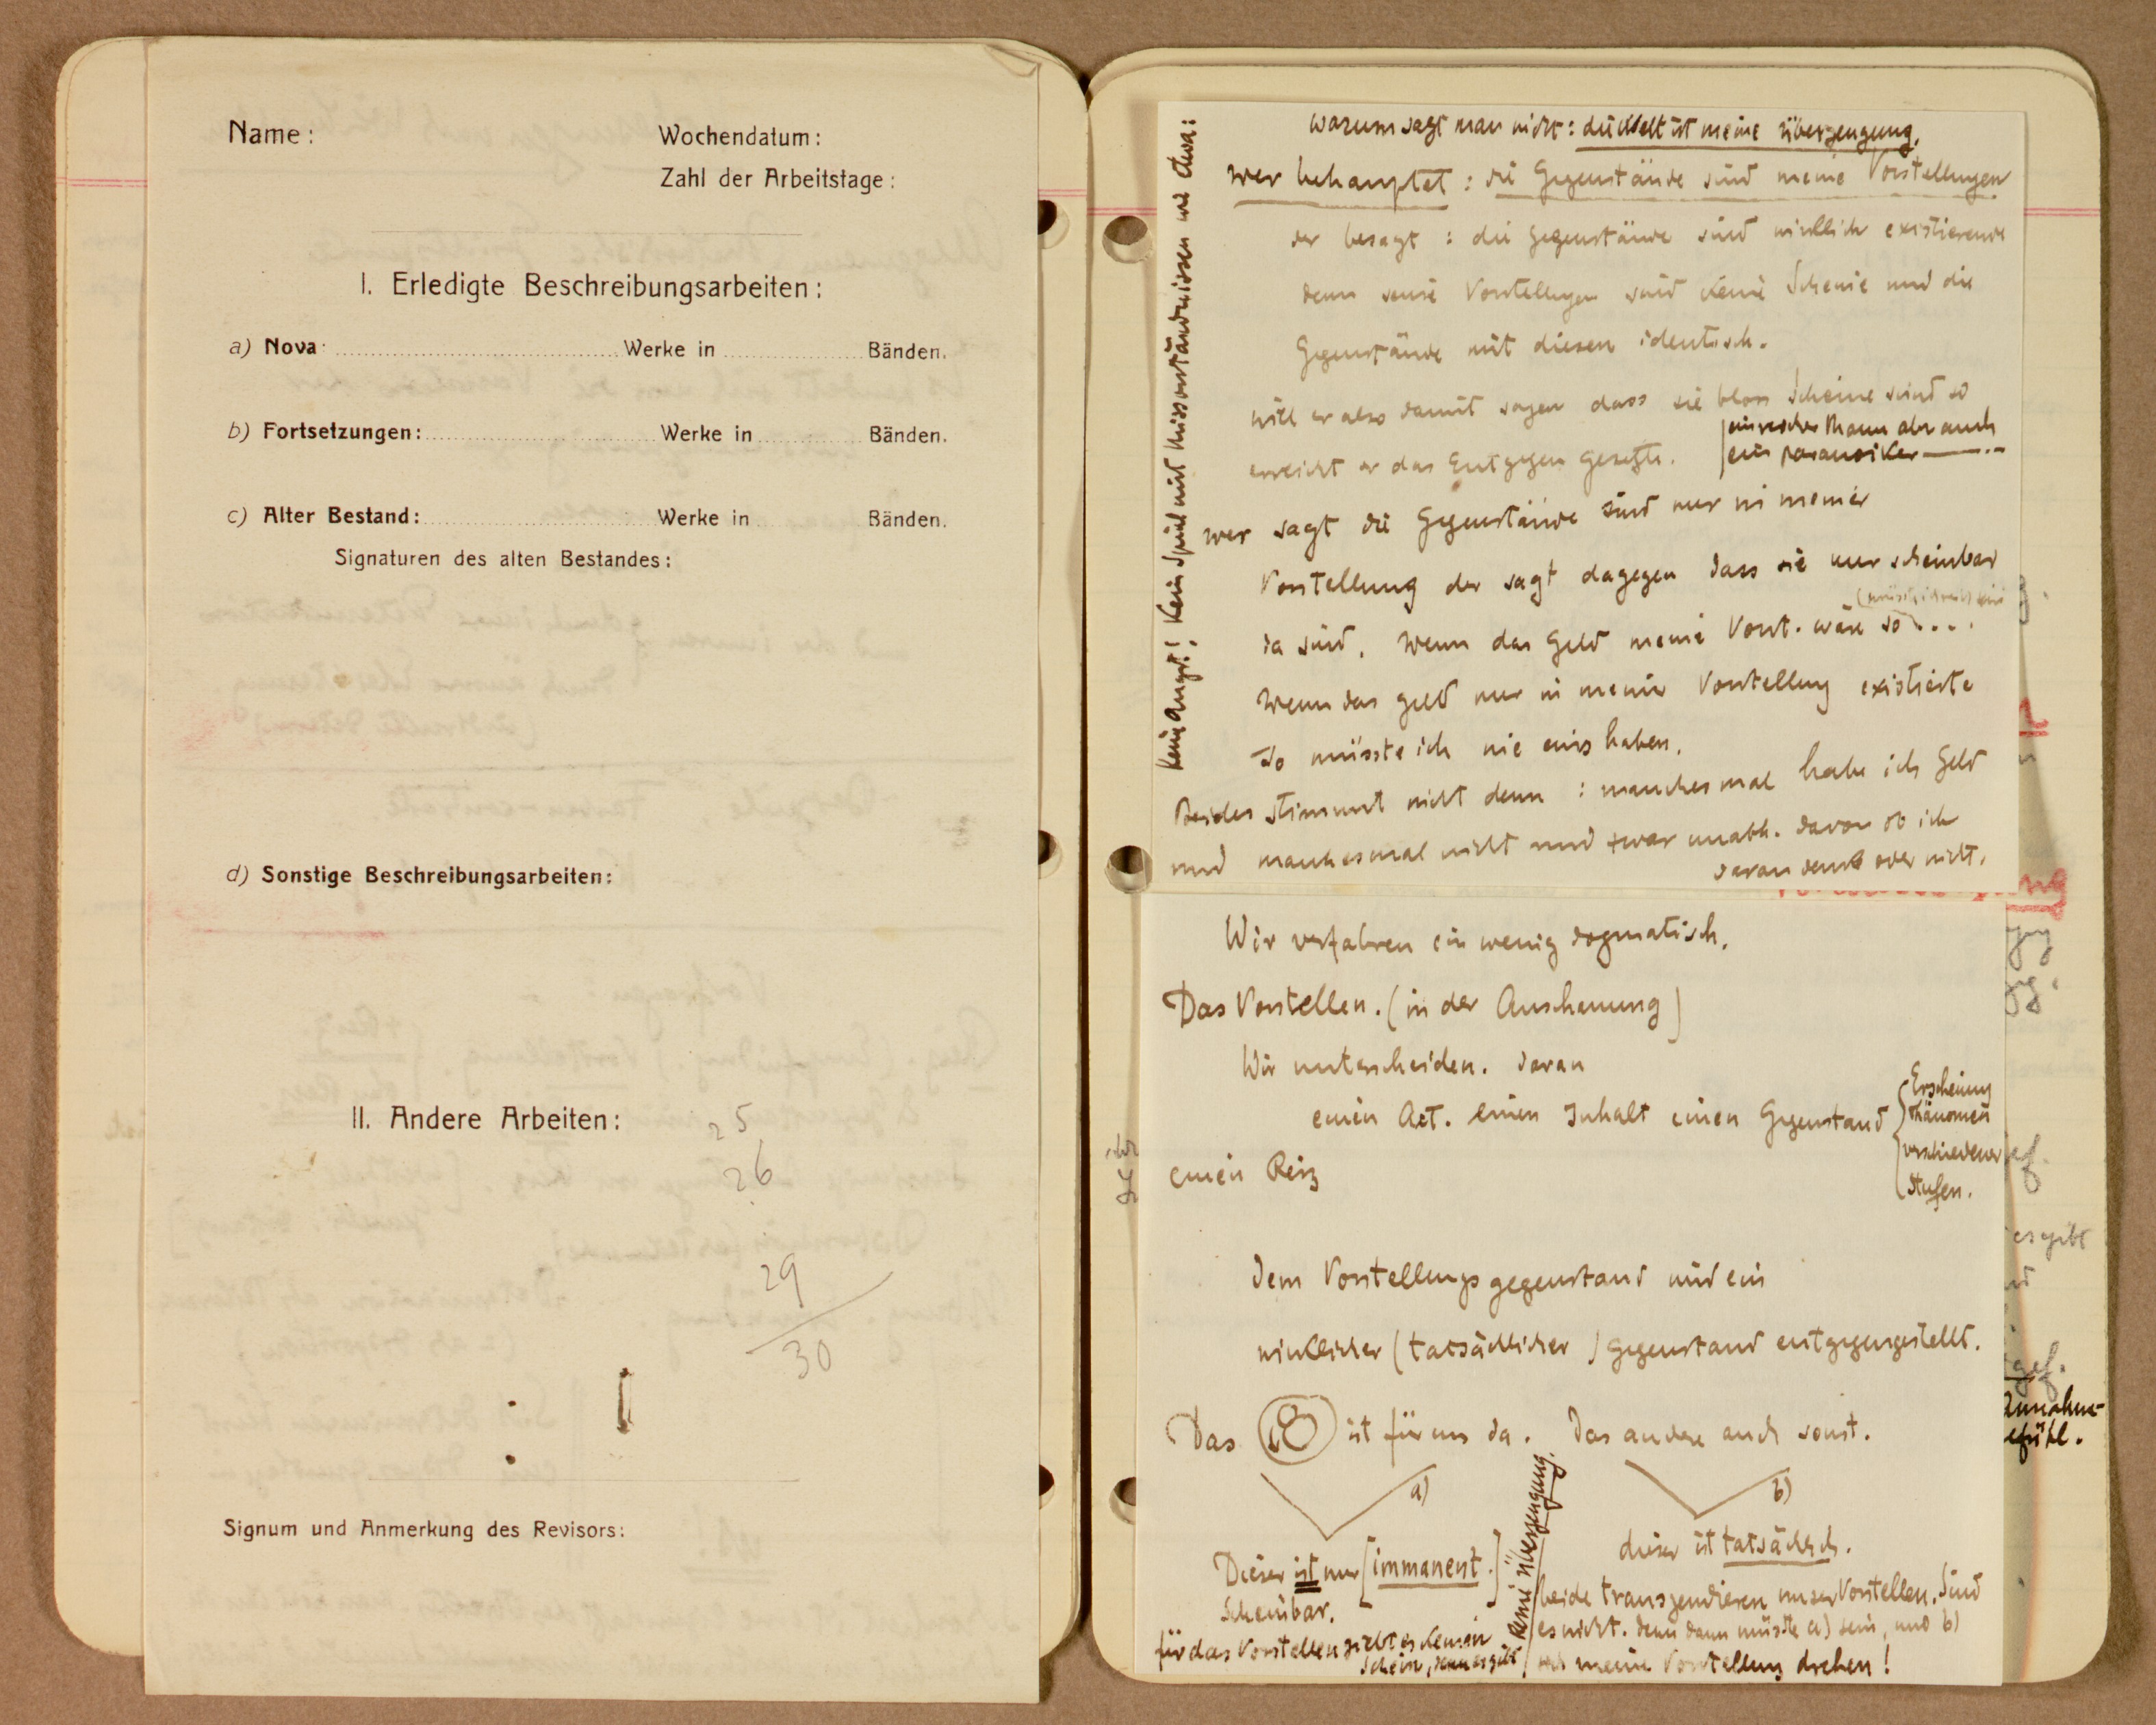 Name:
Wochendatum:
Zahl der Arbeitstage:
I. Erledigte Beschreibungsarbeiten:
a) Nova: Werke in Bänden.
b) Fortsetzungen: Werke in Bänden.
c) Alter Bestand: Werke in Bänden.
Signaturen des alten Bestandes:
d) Sonstige Beschreibungsarbeiten:
II. Andere Arbeiten:
25
26
29
30
Signum und Anmerkung des Revisors:
Keine Angst! Kein Spiel mit Missverständnissen wie etwa:
warum sagt man nicht: die Welt ist meine Überzeugung.
wer behauptet: die Gegenstände sind meine Vorstellungen
der besagt: die Gegenstände sind wirklich existierende
denn seine Vorstellungen sind keine Scheine und die
Gegenstände mit diesen identisch.
will er also damit sagen dass sie bloss Scheine sind so
erreicht er das Entgegen gesetzte.
Mann aber auch
ein paranoiker
wer sagt die Gegenstände sind nur in meiner
Vorstellung der sagt dagegen dass sie nur scheinbar
da sind. Wenn das Geld meine Vorst. wäre so ....
Wenn das geld nur in meiner Vorstellung existierte
So müsste ich nie eins haben.
Beides stimmt nicht denn: manches mal habe ich Geld
und manchesmal nicht und zwar unabh. davon ob ich
daran denke oder nicht.
Wir verfahren ein wenig dogmatisch.
Das Vorstellen. (in der Anschauung)
Wir unterscheiden. daran
einen Act. einen Inhalt einen Gegenstand
Erscheinung
Phänomen
verschiedener
Stufen.
einen Reiz
dem Vorstellungsgegenstand wird ein
wirklicher (tatsächlicher) Gegenstand entgegengestellt.
Das ist für uns da. Das andere auch sonst.
a)
b)
Dieser ist nur [immanent.]
Scheinbar.
für das Vorstellen giebt es keinen
Schein, denn es gibt
keine Überzeugung.
dieser ist tatsächlich.
beide transzendieren unser Vorstellen. Sind
es nicht. denn dann müsste a) sein, und b)
meine Vorstellung drehen!
es gibt
Annahme-
gefühl.